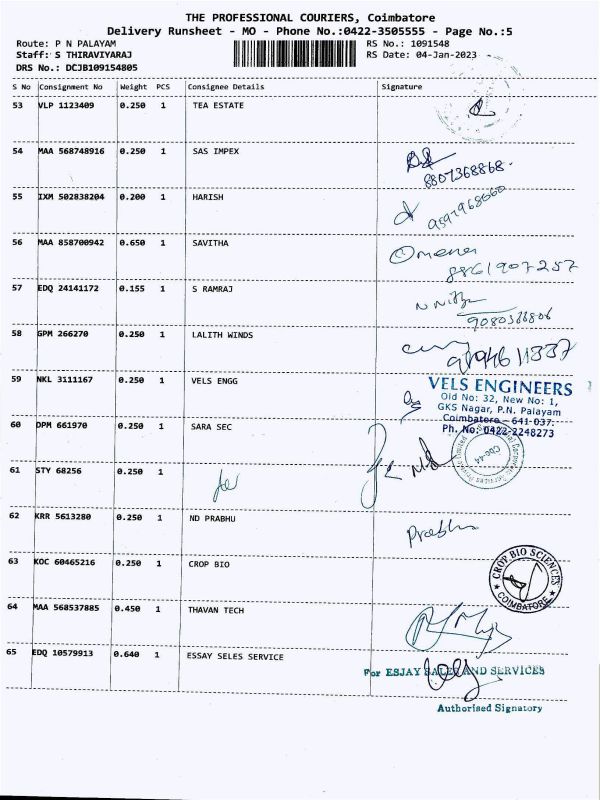 THE PROFESSIONAL COURIERS, Coimbatore
Delivery Runsheet - MO - Phone No.:0422-3505555 - Page No.:5
Route: P N PALAYAM RS No.: 1091548
Staff: S THIRAVIYARAJ RS Date: 04-Jan-2023
DRS No.: DCJB109154805
S No Consignment No Weight PCS Consignee Details Signature
53 VLP 1123409 0.250 1 TEA ESTATE
54 MAA 568748916 0.250 1 SAS IMPEX
8807368868.
55 IXM 502838204 0.200 1 HARISH
56 MAA 858700942 0.650 1 SAVITHA
8861907257
57 EDQ 24141172 0.155 1 S RAMRAJ
58 GPM 266270 0.250 1 LALITH WINDS
59 NKL 3111167 0.250 1 VELS ENGG
VELS ENGINEERS
Old No: 32, New No: 1,
GKS Nagar, P.N. Palayam
Coimbatore - 641 037.
Ph. No: 0422-2248273
60 DPM 661970 0.250 1 SARA SEC
61 STY 68256 0.250 1
62 KRR 5613280 0.250 1 ND PRABHU
Prabhu
63 KOC 60465216 0.250 1 CROP BIO
CROP BIO SCIENCES
COIMBATORE
64 MAA 568537885 0.450 1 THAVAN TECH
65 EDQ 10579913 0.640 1 ESSAY SELES SERVICE
For ESJAY SALES AND SERVICES
Authorised Signatory